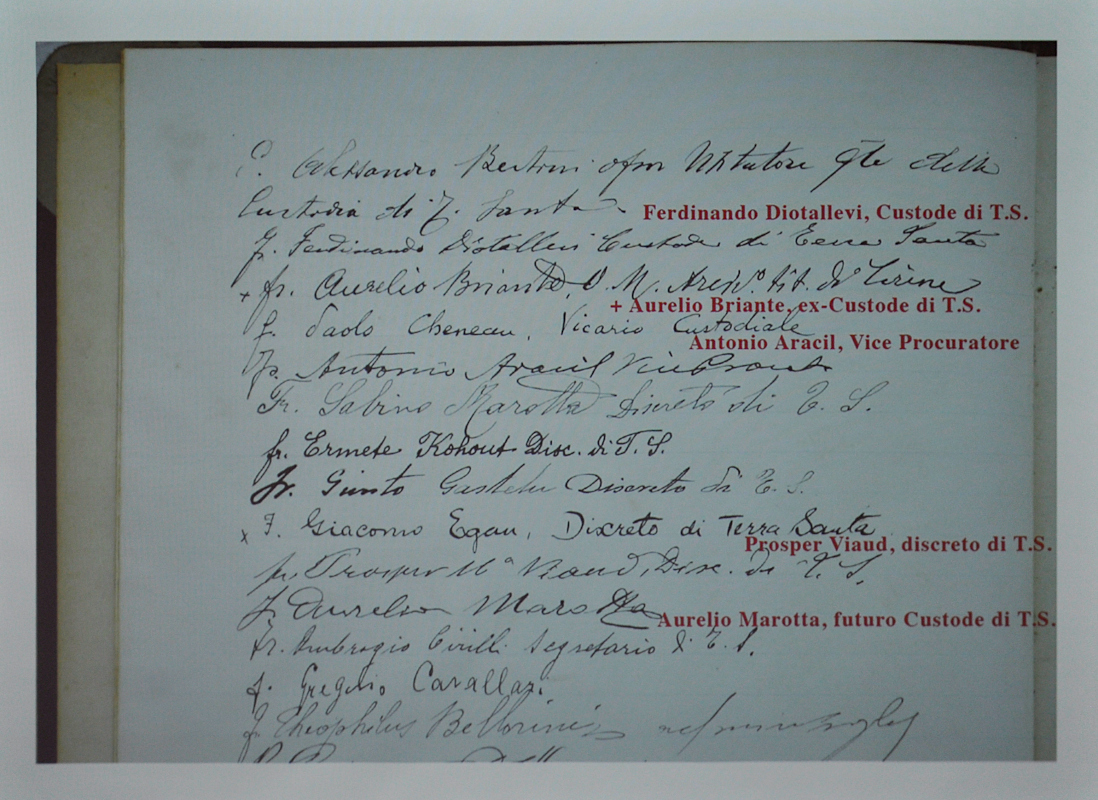 P. Alessandro Bertoni ofm Visitatore Gle della
Custodia di T. Santa
Ferdinando Diotallevi, Custode di T.S.
Fr. Ferdinando Diotallevi Custode di Terra Santa
+ fr. Aurelio Briante, O. M. Arciv.º tit. di Cirene
+ Aurelio Briante, ex-Custode di T.S.
f. Paolo Cheneau, Vicario Custodiale
Antonio Aracil, Vice Procuratore
Fr. Antonio Aracil
Fr. Sabino Marotta Discreto di T. S.
fr. Ermete Kohout Disc. di T. S.
Fr. Giunto Discreto di T. S.
x F. Giacomo Egan, Discreto di Terra Santa
Prosper Viaud, discreto di T.S.
fr. Prosper Mª Viaud, Disc. di T. S.
Fr. Aurelio Marotta
Aurelio Marotta, futuro Custode di T.S.
Fr. Ambrogio Cirilli Segretario di T. S.
f. Gregorio Cavallazi
f. Theophilus Bellorini